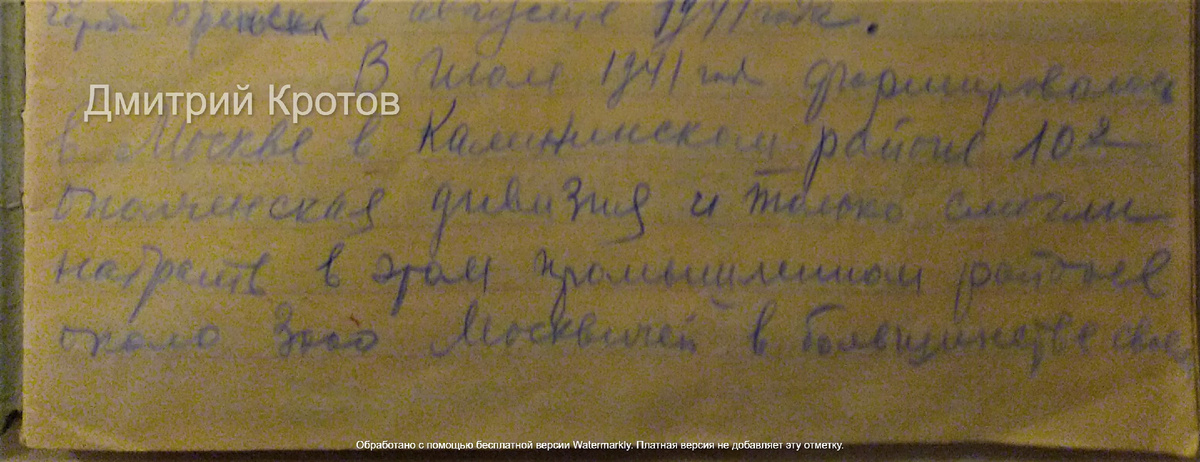 в августе 1941 года.
В Июле 1941 года формировалась
Дмитрий Кротов
в Москве в Калининском районе 10я
ополченская дивизия и только смогли
набрать в этом промышленном районе
около 3000 Москвичей в большинстве свое
Обработано с помощью бесплатной версии Watermarkly. Платная версия не добавляет эту отметку.